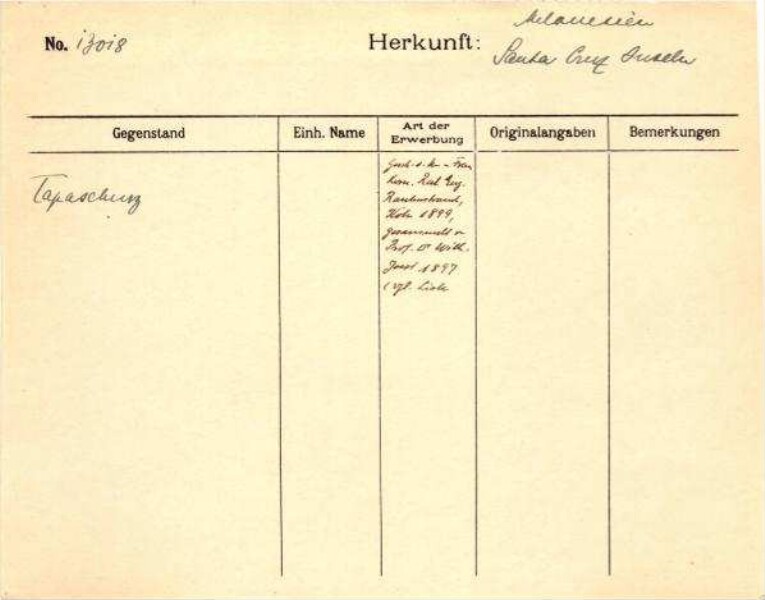 Melanesien
No. 13018 Herkunft: Santa Cruz Inseln
Gegenstand Einh. Name Art der Erwerbung Originalangaben Bemerkungen
Tapaschurz
Gesch. v. Frau
Kom. Rat Eug.
Rautenstrauch,
Köln 1899,
gesammelt v.
Prof. Dr Wilh.
Joest 1897
(vgl. Liste